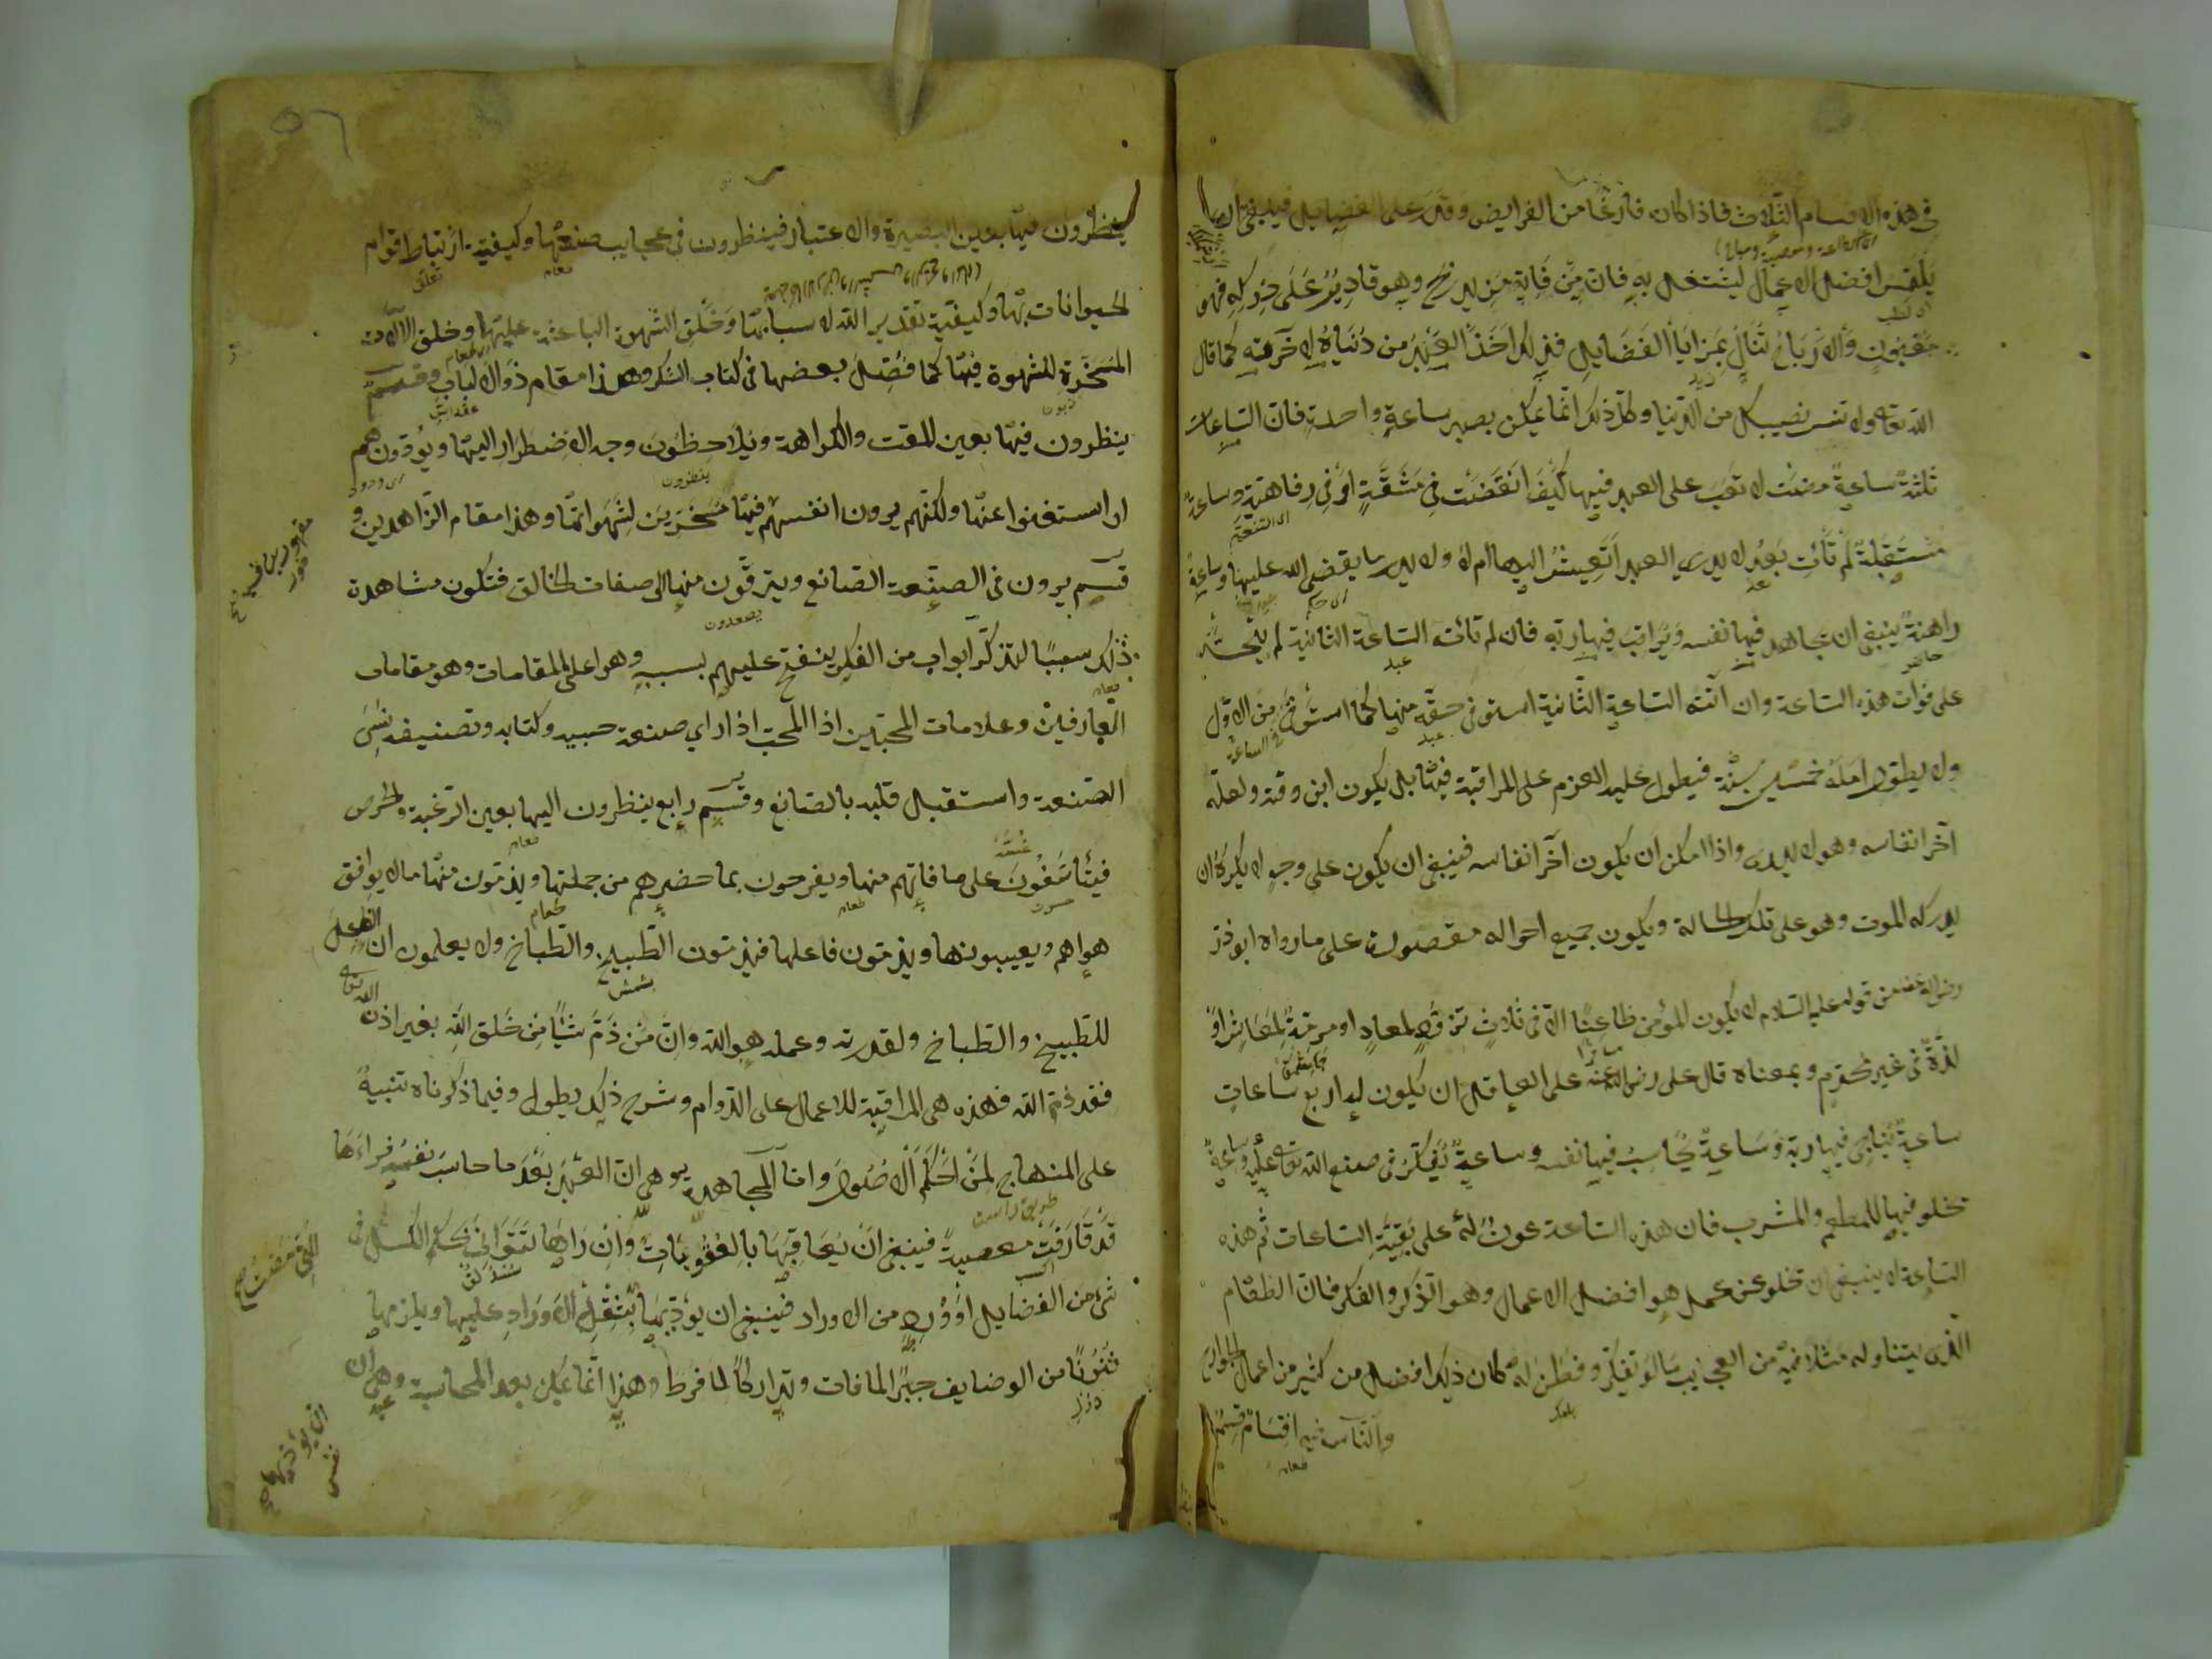 في هذه الاقسام الثلاث فاذا كان فارغا من الفرايض وقدر على الفضايل فينبغي ان
يلتمس افضل الاعمال ليشتغل به فان من فاته مزيد ربح وهو قادر على دركه فهو
مغبون والارباح تنال بمزايا الفضايل فبذلك اخذ العبد من دنياه لاخرته كما قال
الله تعالى ولا تنس نصيبك من الدنيا وكل ذلك انما يمكن بصبر ساعة واحدة فان الساعات
ثلثة ساعة مضت لا تعب على العبد فيها كيف انقضت في مشقة او في رفاهية وساعة
مستقبلة لم تأت بعد لا يدري العبد أيعيش اليها ام لا ولا يدري ما يقضي الله عليها وساعة
راهنة ينبغي ان يجاهد فيها نفسه ويراقب فيها ربه فان لم تأته الساعة الثانية لم يتحسر
على فوات هذه الساعة وان اتته الساعة الثانية استوفى حقه منها كما استوفى من الاول
ولا يطول امله خمسين سنة فيطول عليه العزم على المراقبة فيها بل يكون ابن وقته ولعله
آخر انفاسه وهو لا يدري واذا امكن ان يكون آخر انفاسه فينبغي ان يكون على وجه لا يكره ان
يدركه الموت وهو على تلك الحالة ويكون جميع احواله مقصورة على ما رواه ابو ذر
رضي الله عنه من قوله عليه السلام لا يكون المؤمن ظاعنا الا في ثلاث تزود لمعاد او مرمة لمعاش او
لذة في غير محرم وبمعناه قال علي رضي الله عنه على العاقل ان يكون له اربع ساعات
ساعة يناجي فيها ربه وساعة يحاسب فيها نفسه وساعة يتفكر في صنع الله تعالى عليه وساعة
يخلو فيها للمطعم والمشرب فان هذه الساعة عون له على بقية الساعات ثم هذه
الساعة لا ينبغي ان تخلو عن عمل هو افضل الاعمال وهو الذكر والفكر فان الطعام
الذي يتناوله مثلا فيه من العجايب ما لو تفكر وفطن له كان ذلك افضل من كثير من اعمال الجوارح
والناس فيه اقسام قسم
ينظرون فيها بعين البصيرة والاعتبار فينظرون في عجايب صنعها وكيفية ارتباط قوام
الحيوانات بها وكيفية تقدير الله لاسبابها وخلق الشهوة الباعثة عليها وخلق الآلات
المسخرة للشهوة فيها كما فصل بعضها في كتاب الشكر وهذا مقام ذوي الالباب وقسم
ينظرون فيها بعين المقت والكراهة ويلاحظون وجه الاضطرار اليها ويودون هم
ان استغنوا عنها ولكنهم يرون انفسهم فيها مسخرين لشهواتها وهذا مقام الزاهدين و
قسم يرون في الصنعة الصانع ويترقون منها الى صفات الخالق فتكون مشاهدة
ذلك سببا لتذكر ابواب من الفكر ينفتح عليهم بسببه وهو اعلى المقامات وهو مقامات
العارفين وعلامات المحبين اذا المحب اذا راي صنعة حبيبه وكتابه وتصنيفه نسي
الصنعة واستقبل قلبه بالصانع وقسم رابع ينظرون اليها بعين الرغبة والحرص
فيتأسفون على ما فاتهم منها ويفرحون بما حضرهم من جملتها ويذمون منها ما لا يوافق
هواهم ويعيبونها ويذمون فاعلها فيذمون الطبيخ والطباخ ولا يعلمون ان الفاعل
للطبيخ والطباخ ولقدرته وعمله هو الله وان من ذم شيئا من خلق الله بغير اذن الله تعالى
فقد ذم الله فهذه هي المراقبة للاعمال على الدوام وشرح ذلك يطول وفيما ذكرناه تنبيه
على المنهاج لمن احكم الاصول واما المجاهدة هي ان العبد بعد ما حاسب نفسه فراءها
قد قارفت معصية فينبغي ان يعاقبها بالعقوبات وان راها تتوانى بحكم الكسل في
شيء من الفضايل او ورد من الاوراد فينبغي ان يؤدبها بتثقيل الاوراد عليها ويلزمها
فنونا من الوضايف جبرا لما فات وتداركا لما فرط وهذا انما يمكن بعد المحاسبة وهي ان